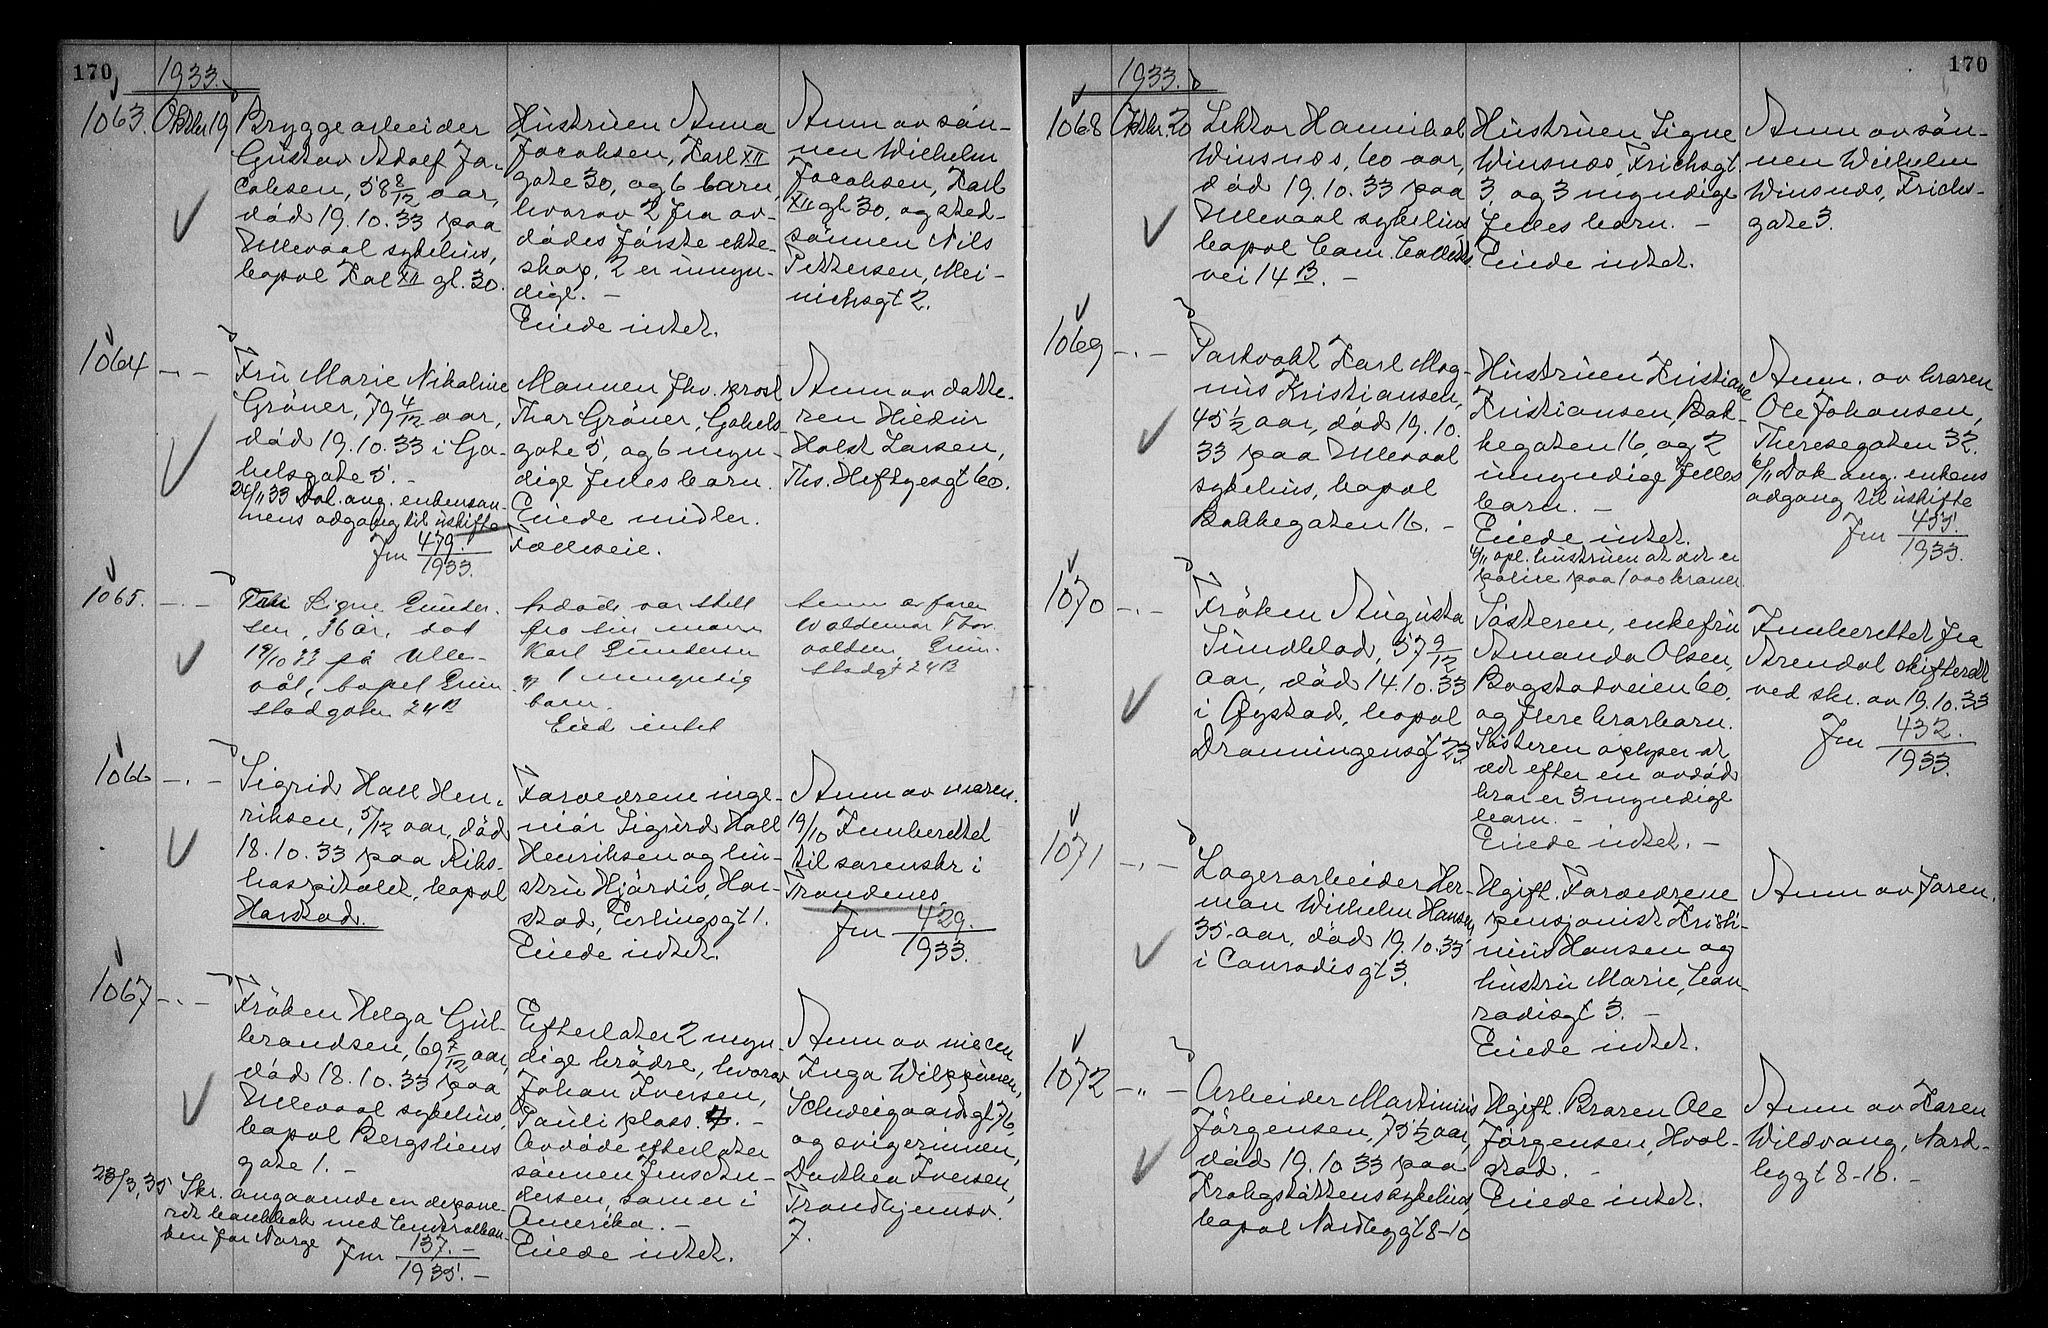 170
1933.
1063. Oktbr 19
Bryggearbeider
Gustav Adolf Ja-
cobsen, 58 8/12 aar,
död 19.10.33 paa
Ullevaal sykehus,
bopæl Karl XII gt. 30.
Hustruen Anna
Jacobsen, Karl XII
gate 30, og 6 barn,
hvorav 2 fra av-
dödes förste ekte-
skap, 2 er umyn-
dige. -
Eiede intet.
Anm av søn-
nen Wilhelm
Jacobsen, Karl
XII gt 30, og sted-
sönnen Nils
Pettersen, Mei-
nichsgt 2.
1064 -.-
Fru Marie Nikoline
Gröner, 79 4/12 aar,
död 19.10.33 i Ga-
belsgate 5. -
24/11 33 Dok. ang. enkeman-
nens adgang til uskifte
Jnr 479. / 1933.
Mannen fhv. prost
Thor Gröner, Gabels-
gate 5, og 6 myn-
dige felles barn.
Eiede midler.
Fælleseie.
Anm av datte-
ren Hiedur
Holst Larsen,
Ths. Heftyesgt 60.
1065. -.-
Fru Signe Gunder-
sen, 36 år, död
19/10 33 på Ulle-
vål, bopel Grim
stadgaten 24B
Avdöde var skilt
fra sin mann
Karl Gundersen
og 1 umyndig
barn.
Eied intet
Anm av faren
Waldemar Thor
valdsen, Grim-
stadgt 24B
1066 -.-
Sigrid Hall Hen-
riksen, 5/12 aar, död
18.10.33 paa Riks-
hospitalet, bopæl
Harstad.
Forældrene inge-
niör Sigurd Hall
Henriksen og hu-
stru Hjördis, Har-
stad, Erlingsgt 1.
Eiede intet.
Anm av moren.
19/10 Innberettet
til sorenskr i
Trondenes
Jnr 429. / 1933.
1067 -.-
Fröken Helga Gul-
brandsen, 69 7/12 aar,
död 18.10.33 paa
Ullevaal sykehus,
bopæl Bergsliens
gate 1. -
23/3, 35 Skr. angaaende en depone-
ret bankbok med Centralban-
ken for Norge Jnr 137.- / 1935. -
Efterlater 2 myn-
dige brödre, hvorav
Johan Iversen,
Pauli plass 4. -
Avdöde efterlater
sønnen Jens An-
dersen, som er i
Amerika. -
Eiede intet.
Anm av niecen
Inga
Schweigaardsgt 76,
og svigerinnen,
Dorthea Iversen,
Trondhjemsv.
7.
170
1933.
1068 Oktbr. 20
Lektor Hannibal
Winsnes, 60 aar,
död 19.10.33 paa
Ullevaal sykehus
bopæl Cam. Colletts
vei 14B. -
Hustruen Signe
Winsnes, Frichsgt.
3, og 3 myndige
felles barn. -
Eiede intet.
Anm av søn-
nen Wilhelm
Winsnes, Frichs-
gate 3.
1069 -.-
Parkvakt Karl Mag-
nus Kristiansen,
45 1/2 aar, död 19.10.
33 paa Ullevaal
sykehus, bopæl
Bakkegaten 16. -
Hustruen Kristiane
Kristiansen, Bak-
kegaten 16, og 2
umyndige felles
barn. -
Eiede intet.
4/11 opl. hustruen at det er
police paa 1000 kroner
Anm. av broren
Ole Johansen,
Theresegaten 32.
6/11 Dok ang. enkens
adgang til uskifte
Jnr 455. / 1933.
1070 -.-
Fröken Augusta
Sundblad, 57 9/12
aar, död 14.10.33
i Øystad, bopæl
Dronningensgt 23
Søsteren, enkefru
Amanda Olsen,
Bogstadveien 60,
og flere brorbarn.
Søsteren oplyser at
det efter en avdød
bror er 3 myndige
barn. -
Eiede intet. -
Innberettet fra
Arendal skifterett
ved skr. av 19.10.33
Jnr 432. / 1933.
1071 -.-
Lagerarbeider Her-
man Wilhelm Hansen,
35 aar, död 19.10.33
i Conradisgt 3.
Ugift. Forældrene
pensjonist Kristi-
nius Hansen og
hustru Marie, Con-
radisgt 3. -
Eiede intet.
Anm av faren.
1072 -"-
Arbeider Martinius
Jörgensen, 75 1/2 aar,
död 19.10.33 paa
Krohgstøttens sykehus,
bopæl Nordbyggt 8-10
Ugift. Broren Ole
Jörgensen, Hval-
stad. -
Eiede intet.
Anm av Karen
Wildvang, Nord-
byggt 8-10. -